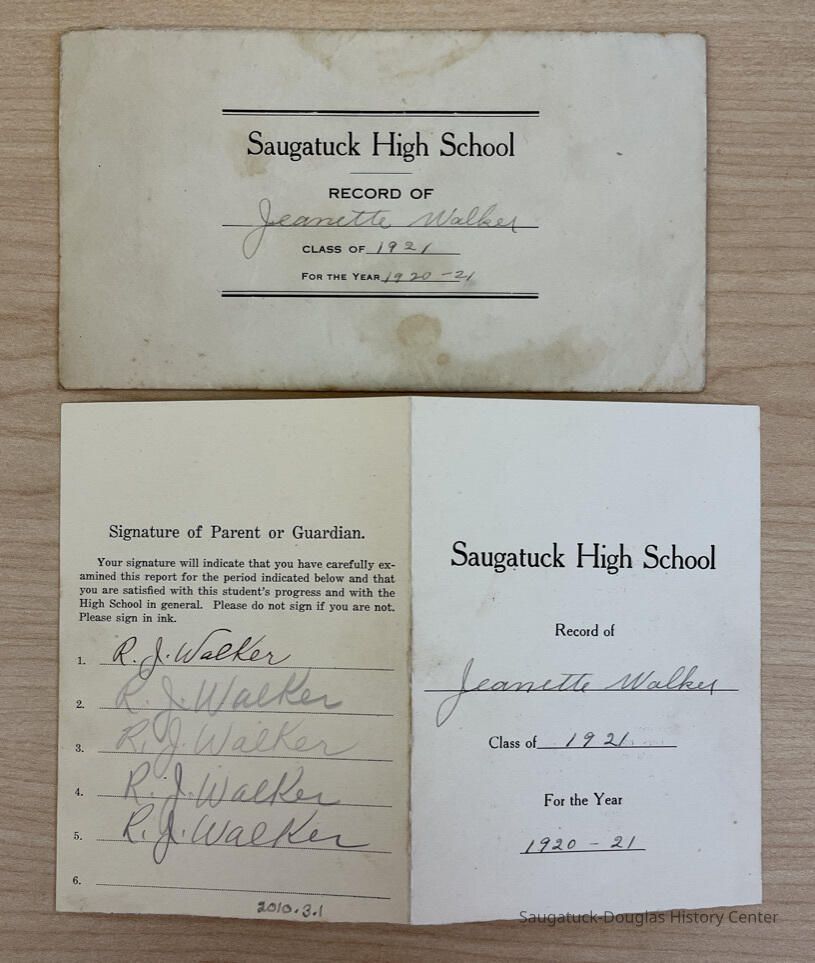 Saugatuck High School
RECORD OF
Jeanette Walker
CLASS OF 1921
FOR THE YEAR 1920-21
Signature of Parent or Guardian.
Your signature will indicate that you have carefully ex-
amined this report for the period indicated below and that
you are satisfied with this student's progress and with the
High School in general. Please do not sign if you are not.
Please sign in ink.
1. R. J. Walker
2. R. J. Walker
3. R. J. Walker
4. R. J. Walker
5. R. J. Walker
6.
2010.3.1
Saugatuck High School
Record of
Jeanette Walker
Class of 1921
For the Year
1920 - 21
Saugatuck-Douglas History Center